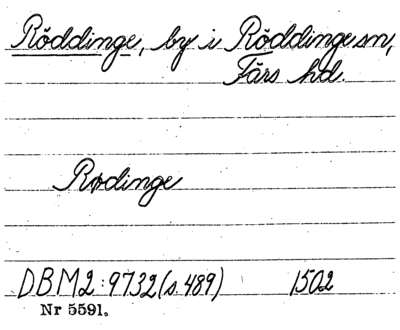 Röddinge, by i Röddinge sn,
Färs hd.
Rødinge
DBM2:9732(s.489) 1502
Nr 5591.